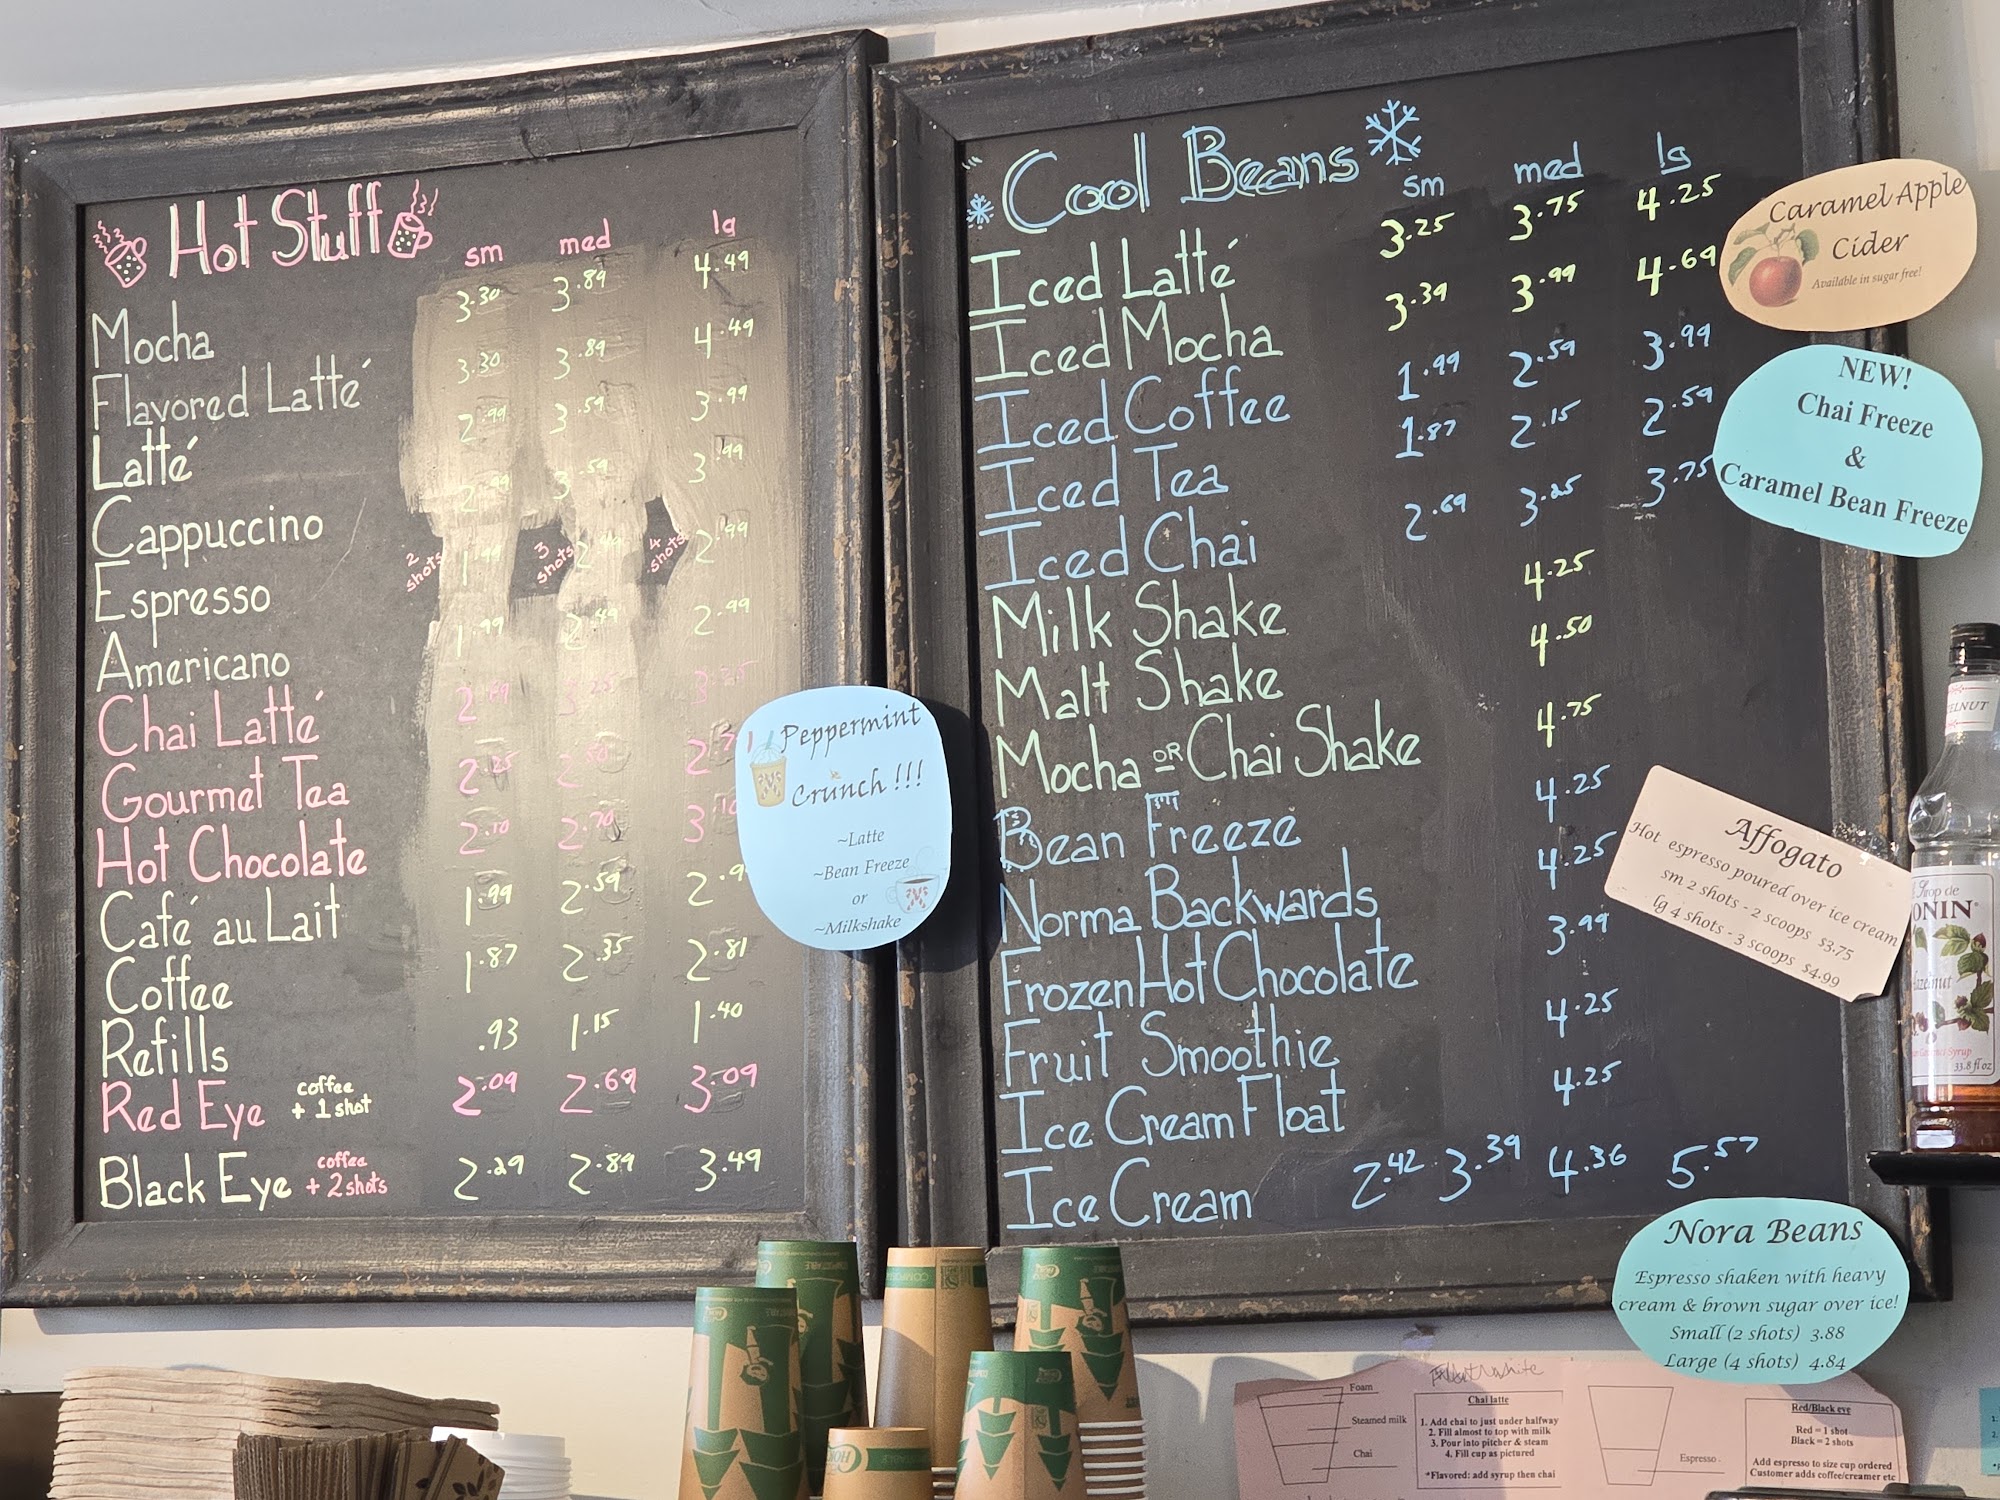 Hot Stuff
sm med lg
Mocha 3.30 3.89 4.49
Flavored Latté 3.30 3.89 4.49
Latté 2.99 3.59 3.99
Cappuccino 2.99 3.59 3.99
Espresso 2 shots 1.99 3 shots 2.49 4 shots 2.99
Americano 1.99 2.49 2.99
Chai Latté 2.69 3.25 3.75
Gourmet Tea 2.25 2.50
Hot Chocolate 2.10 2.70
Café au Lait 1.99 2.59
Coffee 1.87 2.35 2.81
Refills .93 1.15 1.40
Red Eye coffee + 1 shot 2.09 2.69 3.09
Black Eye coffee + 2 shots 2.29 2.89 3.49
Peppermint
Crunch!!!
~Latte
~Bean Freeze
or
~Milkshake
Cool Beans
sm med lg
Iced Latté 3.25 3.75 4.25
Iced Mocha 3.39 3.99 4.69
Iced Coffee 1.99 2.59 3.99
Iced Tea 1.87 2.15 2.59
Iced Chai 2.69 3.25 3.75
Milk Shake 4.25
Malt Shake 4.50
Mocha OR Chai Shake 4.75
Bean Freeze 4.25
Norma Backwards 4.25
Frozen Hot Chocolate 3.99
Fruit Smoothie 4.25
Ice Cream Float 4.25
Ice Cream 2.42 3.39 4.36 5.57
Caramel Apple
Cider
Available in sugar free!
NEW!
Chai Freeze
&
Caramel Bean Freeze
Affogato
Hot espresso poured over ice cream
sm 2 shots - 2 scoops $3.75
lg 4 shots - 3 scoops $4.99
Nora Beans
Espresso shaken with heavy
cream & brown sugar over ice!
Small (2 shots) 3.88
Large (4 shots) 4.84
Foam
Steamed milk
Chai
Chai latte
1. Add chai to just under halfway
2. Fill almost to top with milk
3. Pour into pitcher & steam
4. Fill cup as pictured
*Flavored: add syrup then chai
Espresso
Red/Black eye
Red = 1 shot
Black = 2 shots
Add espresso to size cup ordered
Customer adds coffee/creamer etc
33.8 fl oz